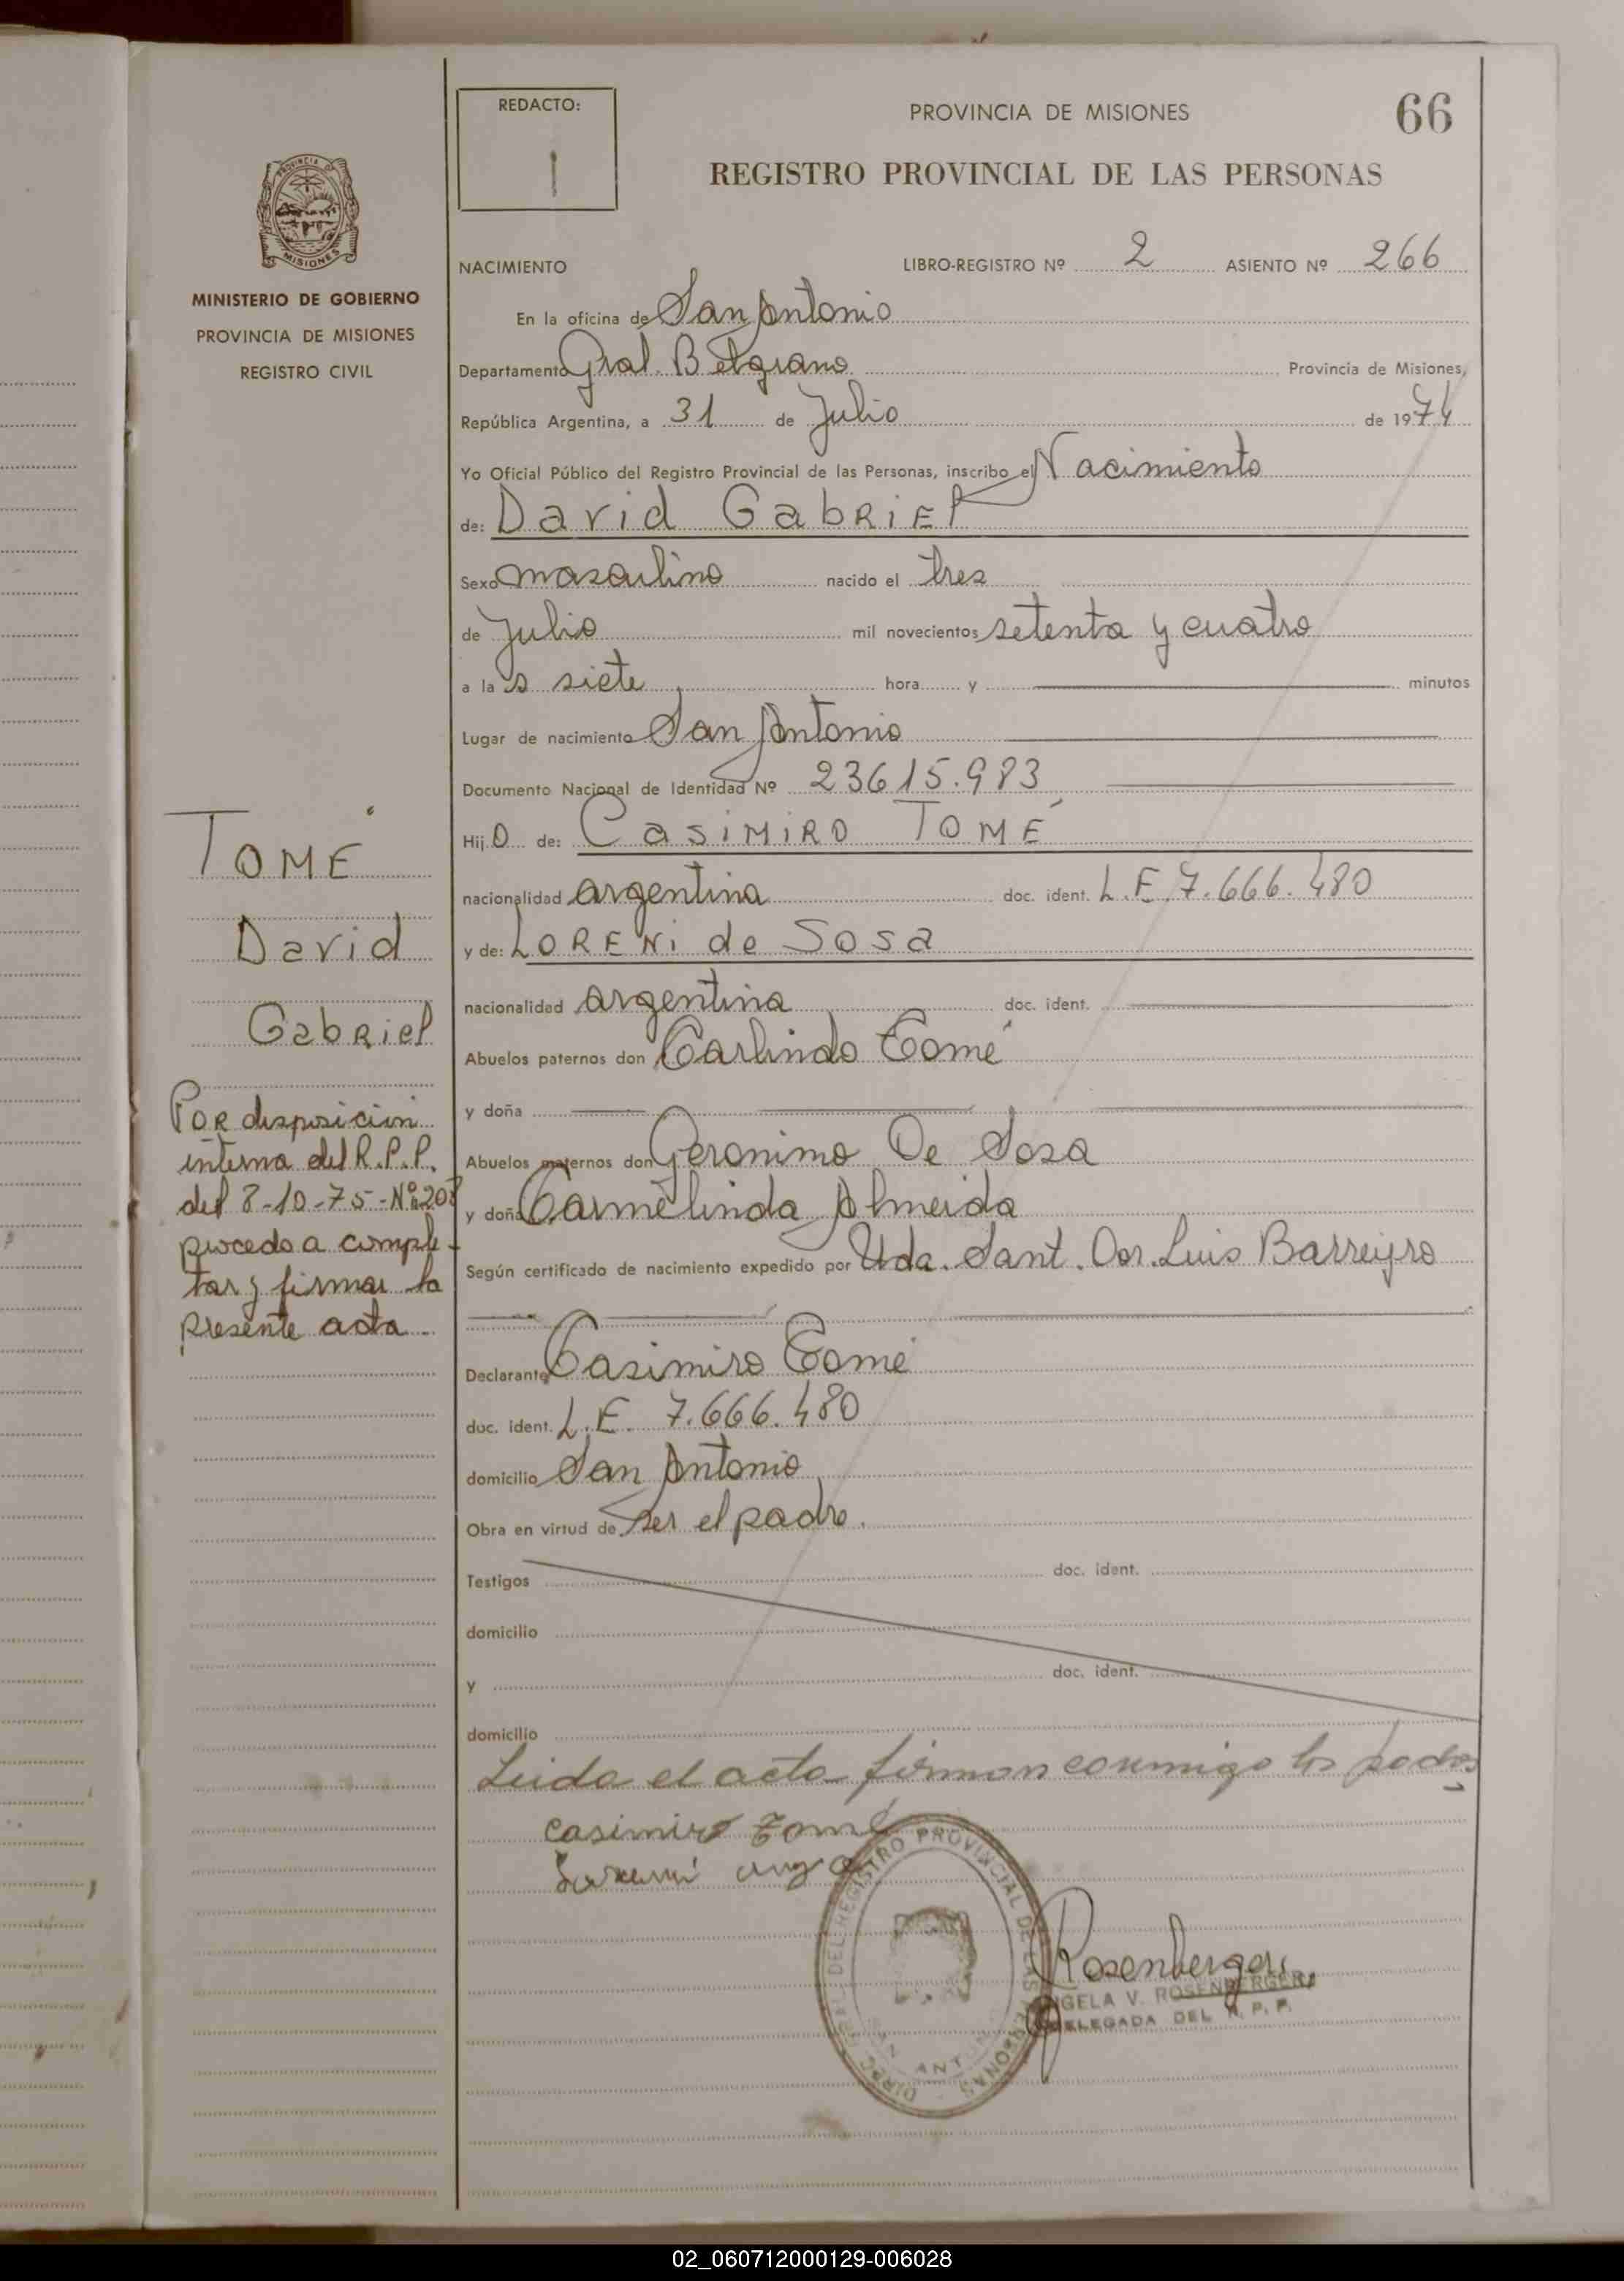 REDACTO:
1
PROVINCIA DE MISIONES
66
REGISTRO PROVINCIAL DE LAS PERSONAS
PROVINCIA DE
MISIONES
MINISTERIO DE GOBIERNO
PROVINCIA DE MISIONES
REGISTRO CIVIL
NACIMIENTO LIBRO-REGISTRO Nº 2 ASIENTO Nº 266
En la oficina de San Antonio
Departamento Gral. Belgrano Provincia de Misiones,
República Argentina, a 31 de Julio de 1974
Yo Oficial Público del Registro Provincial de las Personas, inscribo el Nacimiento
de: David GabRiEl
Sexo masculino nacido el tres
de Julio mil novecientos setenta y cuatro
a la s siete hora y minutos
Lugar de nacimiento San Antonio
Documento Nacional de Identidad Nº 23615.983
Hij o de: CasiMiRO TOMÉ
nacionalidad argentina doc. ident. L.E. 7.666.480
y de: LORENi de Sosa
nacionalidad argentina doc. ident.
Abuelos paternos don Carlindo Tomé
y doña
Abuelos maternos don Geronimo De Sosa
y doña Carmelinda Almeida
Según certificado de nacimiento expedido por Uda. Sant. Dor. Luis Barreyro
Declarante Casimiro Tomé
doc. ident. L.E. 7.666.480
domicilio San Antonio
Obra en virtud de ser el padre.
Testigos doc. ident.
domicilio
y doc. ident.
domicilio
Leida el acta firman conmigo los padres
casimiro Tomé
Loreni
DIREC. GRAL. DEL REGISTRO PROVINCIAL DE LAS PERSONAS
SAN ANTONIO
Rosenberger
ANGELA V. ROSENBERGER
DELEGADA DEL R. P. P.
TOMÉ
David
Gabriel
POR disposición
interna del R.P.P.
del 8-10-75-Nº 208
procedo a comple-
tar y firmar la
presente acta
02_060712000129-006028